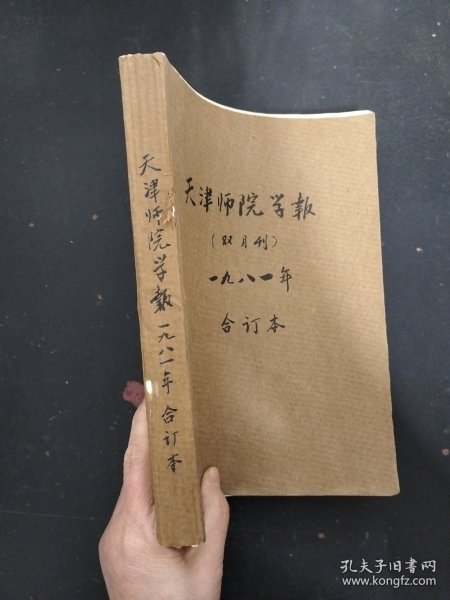 天津师院学報
(双月刊)
一九八一年
合订本
天津师院学報一九八一年合订本
孔夫子旧书网
www.kongfz.com